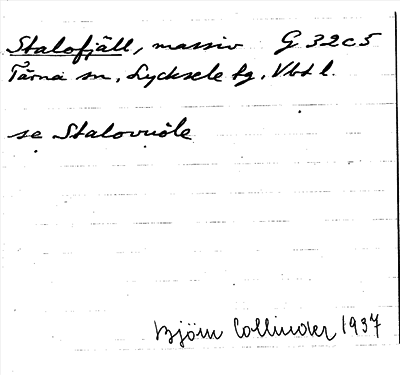 Stalofjäll, massiv G 32c5
Tärna sn, Lycksele tg, Vbt l.
se Stalovuöle
Björn Collinder 1937